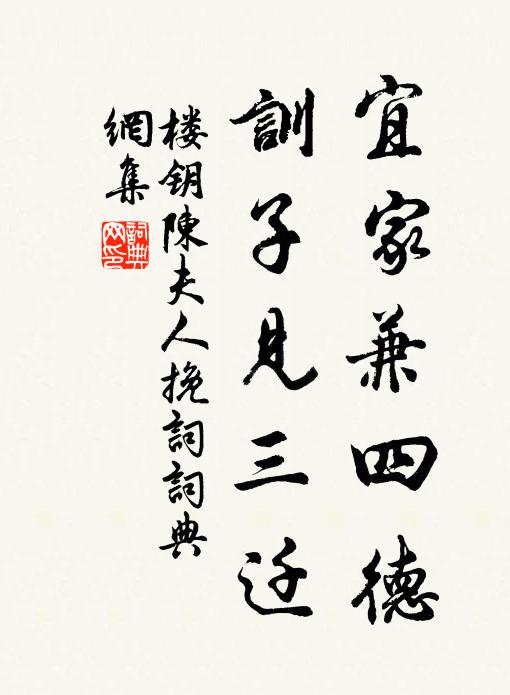 宜家兼四德
訓子見三迁
楼钥陳夫人挽詞詞典
網集
詞典
网印